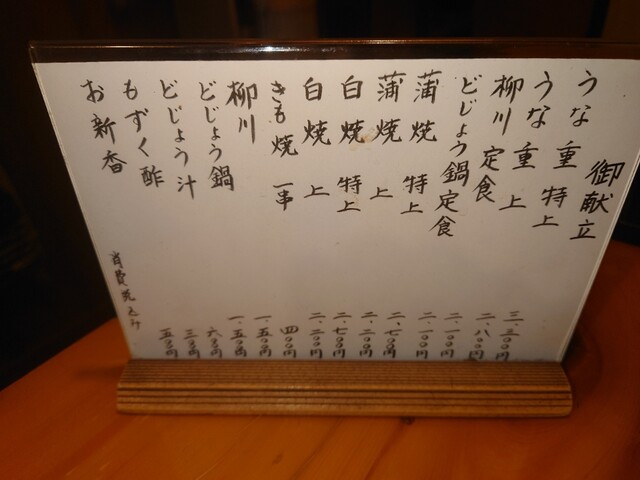 御献立
うな重 特上 三、三〇〇円
うな重 上 二、八〇〇円
柳川定食 二、一〇〇円
どじょう鍋定食 二、一〇〇円
蒲焼 特上 二、七〇〇円
蒲焼 上 二、二〇〇円
白焼 特上 二、七〇〇円
白焼 上 二、二〇〇円
きも焼 一串 四〇〇円
柳川 一、五〇〇円
どじょう鍋 一、五〇〇円
どじょう汁 六〇〇円
もずく酢 三〇〇円
お新香 五〇〇円
消費税込み